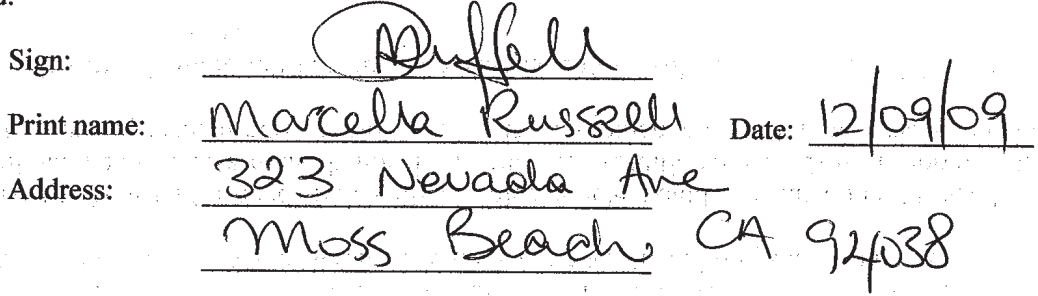 Sign:
Print name: Marcella Russell Date: 12/09/09
Address: 323 Nevada Ave
Moss Beach CA 94038